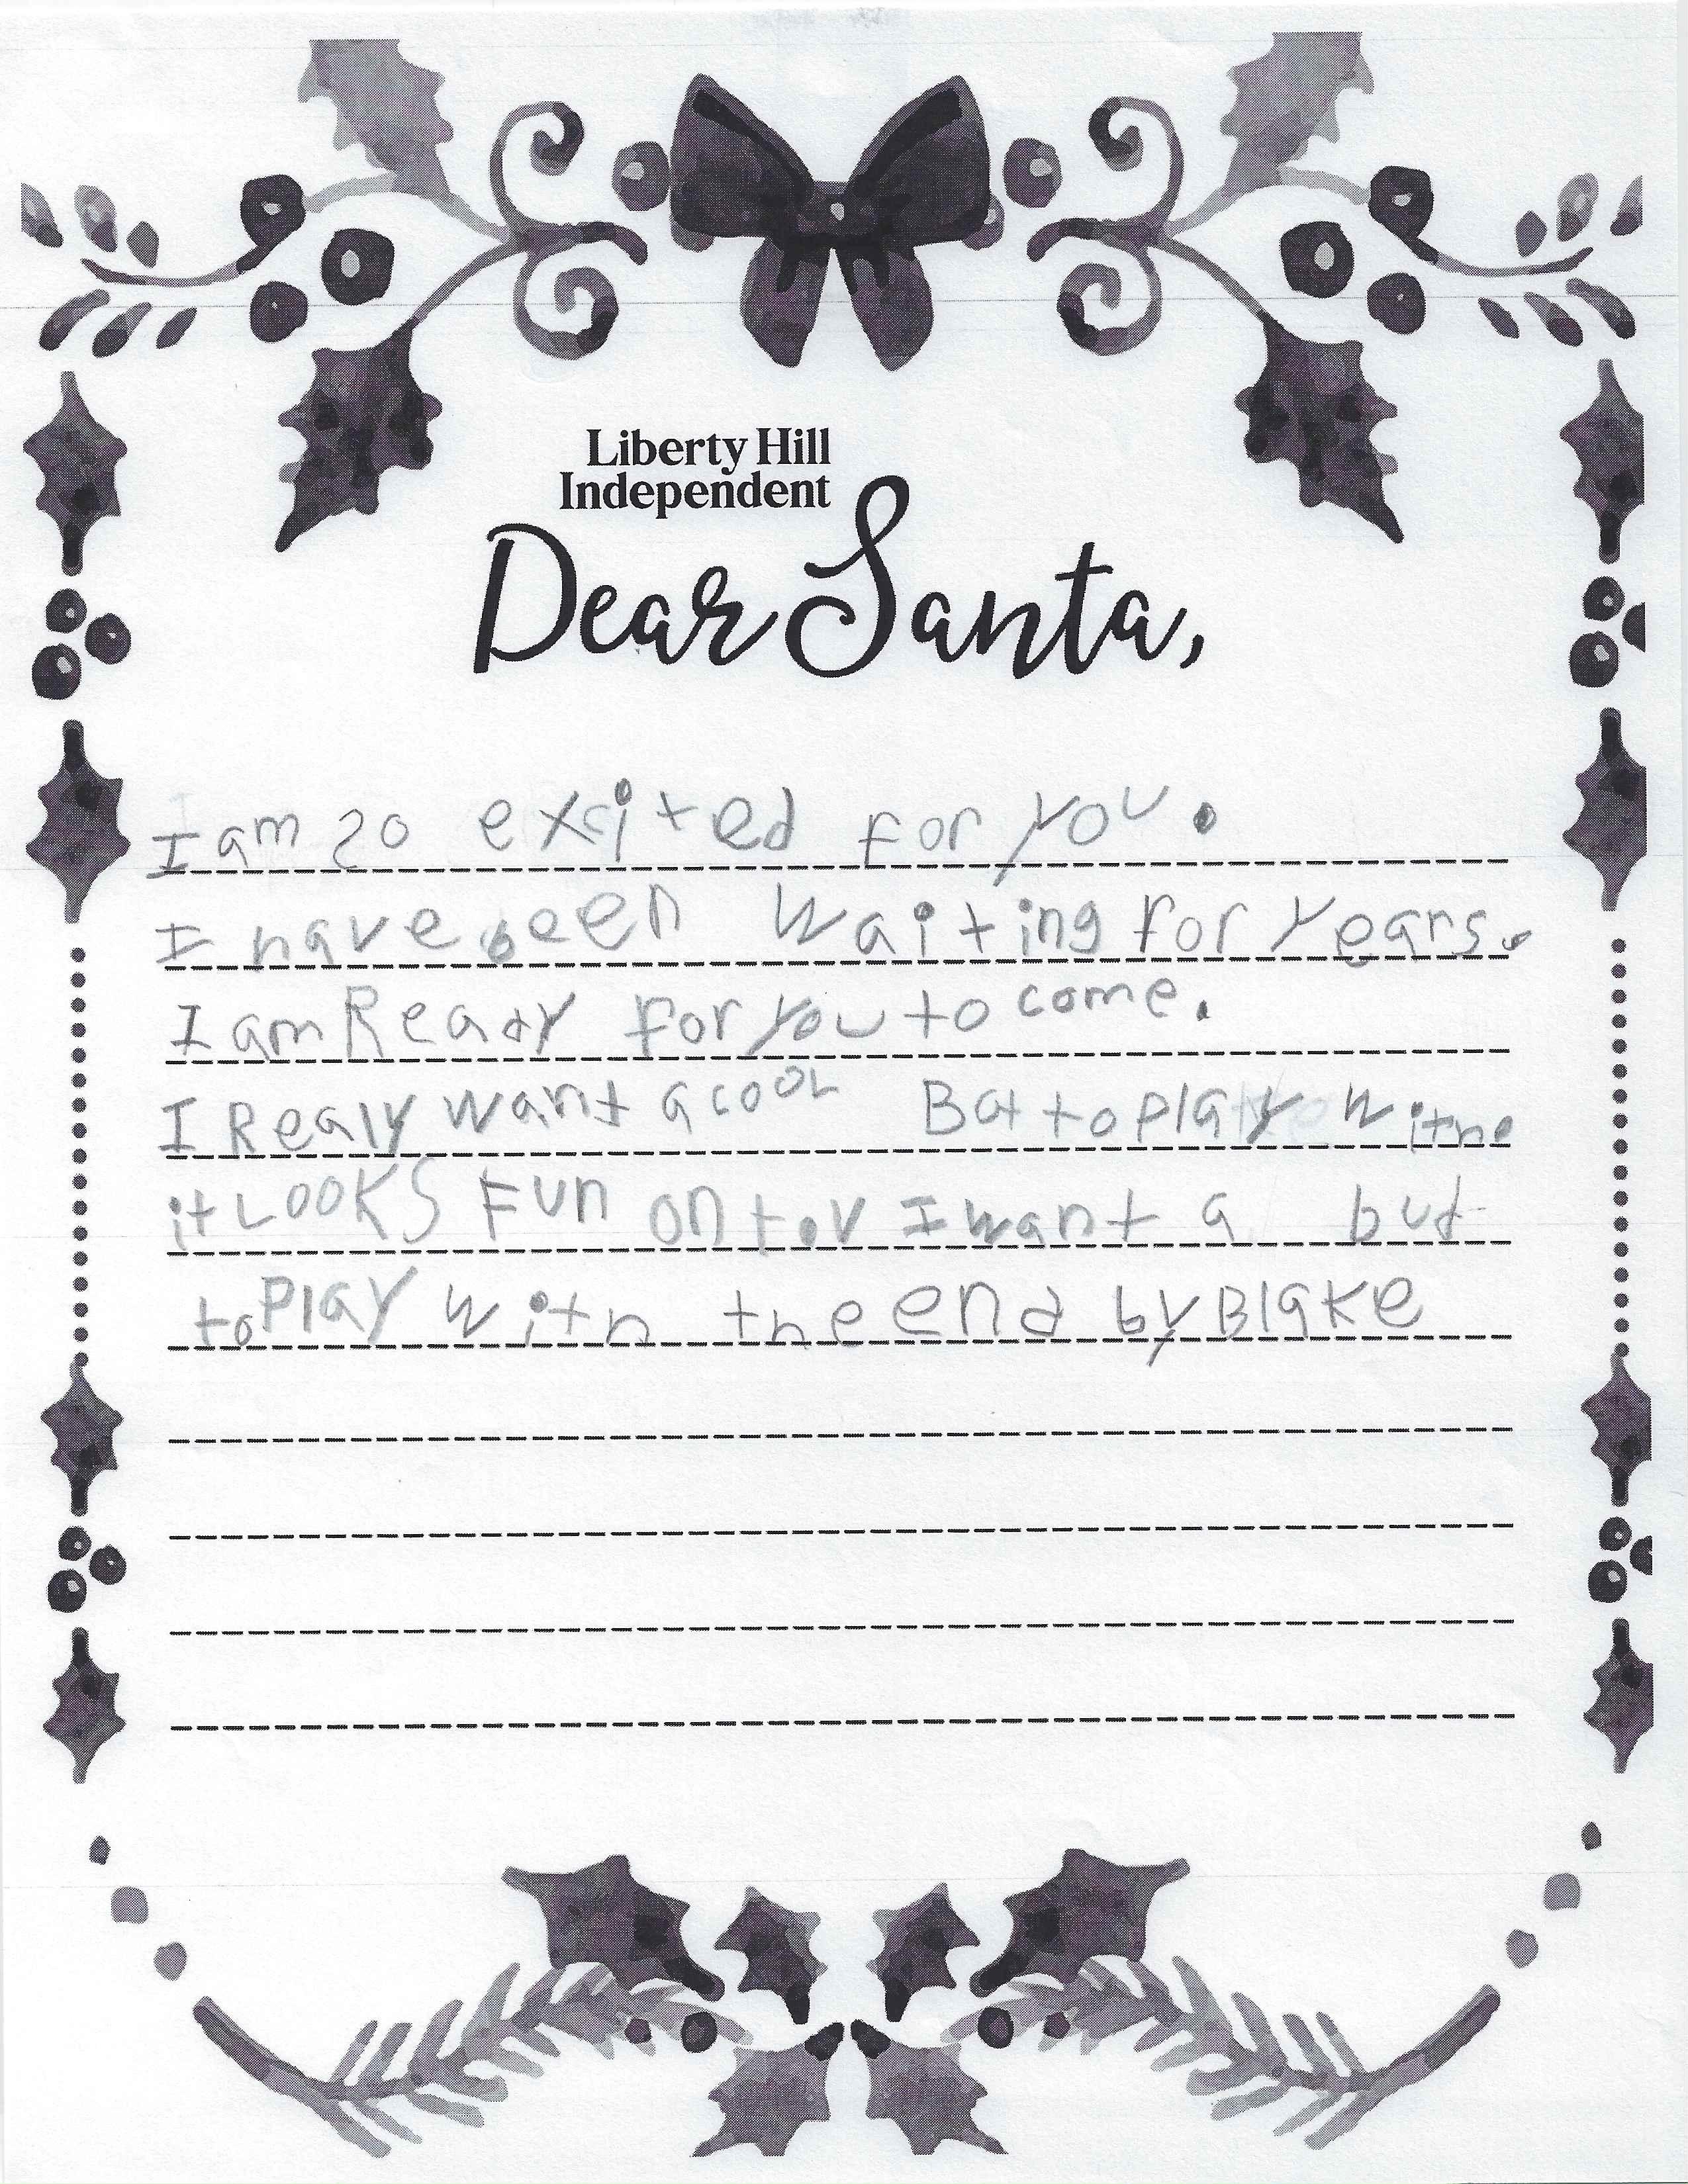 Liberty Hill
Independent
Dear Santa,
I am so excited for you.
I have been waiting for years.
I am Ready for you to come.
I Realy want a cool Bat to play with.
it Looks Fun on t.v I want a bud
to Play with the end by Blake